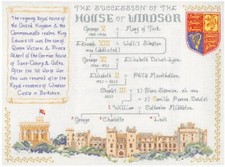 THE SUCCESSION OF THE
HOUSE OF WINDSOR
The reigning Royal house of
the United Kingdom & the
Commonwealth realms. King
Edward VII was the son of
Queen Victoria & Prince
Albert of the German house
of Saxe-Coburg & Gotha.
After the 1st World War
this was renamed after the
Royal residence of Windsor
Castle in Berkshire
George V = Mary of Teck
Edward VIII = Wallis Simpson
(abdicated)
George VI = Elizabeth Bowes-Lyon
Elizabeth II = Philip Mountbatten
Charles III = Diana Spencer
= Camilla Parker Bowles
William = Catherine Middleton
George Charlotte Louis